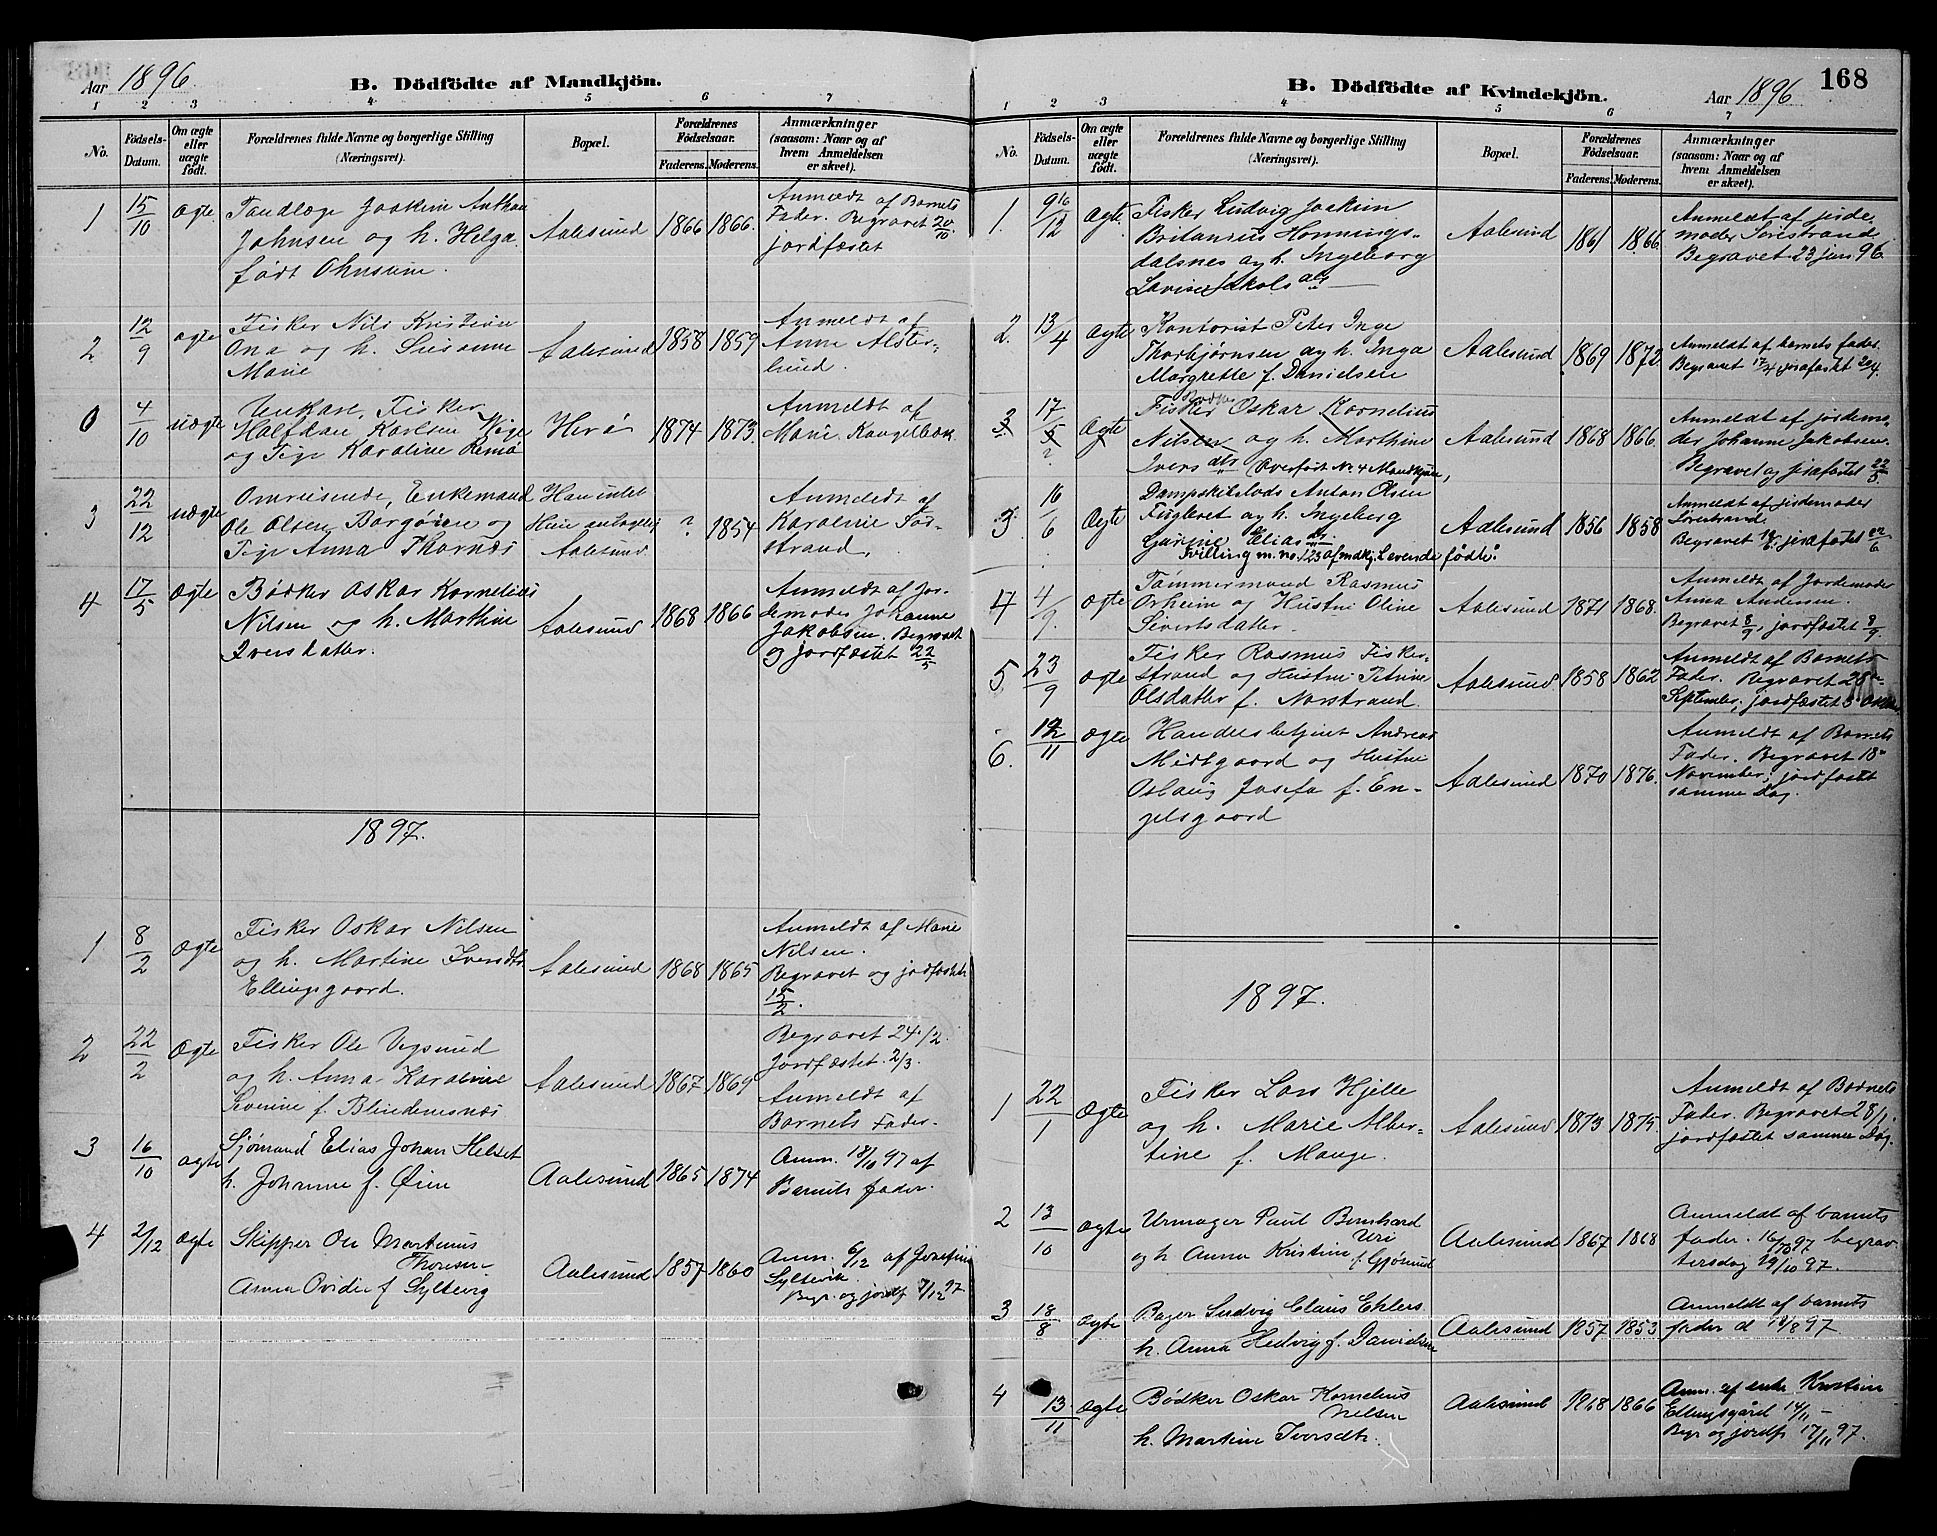 Aar 1896.
B. Dödfödte af Mandkjön.
1 2 3 4 5 6 7
No.
Födsels-Datum.
Om ægte eller uægte født.
Forældrenes fulde Navne og borgerlige Stilling (Næringsvei).
Bopæl.
Forældrenes Födselsaar.
Faderens. Moderens.
Anmærkninger (saasom: Naar og af hvem Anmeldelsen er skeet).
1 15/10 ægte Tandlæge Joakim Anthon Aalesund 1866 1866 Anmeldt af Barnets
Johnsen og h. Helga Fader. Begravet 20/10.
født Ohnsum. jordfæstet
2 12/9 ægte Fisker Nils Kristian Aalesund 1858 1859 Anmeldt af
Ona og h. Susanne Anne Alster-
Marie lund.
0 4/10 uægte Unkarl, Fisker Herö 1874 1873 Anmeldt af
Halfdan Karlsen Marie
og Pige Karoline Remö
3 22/12 uægte Omreisende, Enkemand Han intet ? 1854 Anmeldt af
Ole Olsen Borgöien og Hun
Pige Anna Thornæs Aalesund strand.
4 17/5 ægte Bødker Oskar Kornelius Aalesund 1868 1866 Anmeldt af Jor-
Nilsen og h. Marthine demoder Johanne
Iversdatter. Jakobsen. Begravet
og jordfæstet 22/5
1897.
1 8/2 ægte Fisker Oskar Nilsen Aalesund 1868 1865 Anmeldt af Marie
og h. Martine Iversdtr Nilsen.
Ellingsgaard. Begravet og jordfæstet
15/2.
2 22/2 ægte Fisker Ole Vegsund Aalesund 1867 1869 Begravet 24/2.
og h. Anna Karoline Jordfæstet 2/3.
Severine f. Blindemsnes. Anmeldt af
Barnets Fader.
3 16/10 ægte Sjømand Elias Johan Helset Aalesund 1865 1874 Anm. 18/10 97 af
h. Johanne f. Øien Barnets fader.
4 2/12 ægte Skipper Ole Martinus Aalesund 1857 1860 Anm. 6/12 af Josefine
Thoresen Syltevik.
Anna Ovidie f. Syltevig Begr. og jordf. 7/12 97.
B. Dödfödte af Kvindekjön.
Aar 1896 168
1 2 3 4 5 6 7
No.
Födsels-Datum.
Om ægte eller uægte födt.
Forældrenes fulde Navne og borgerlige Stilling (Næringsvei).
Bopæl.
Forældrenes Födselsaar.
Faderens. Moderens.
Anmærkninger (saasom: Naar og af hvem Anmeldelsen er skeet).
1. /12 ægte Fisker Ludvig Joakim Aalesund 1861 1866. Anmeldt af jorde-
Britanius Hornings- moder Sorestrand.
dalsnes og h. Ingeborg Begravet 23 jan. 96.
Lovise Jakobsdtr
2. 13/4 ægte Kontorist Peter Inge Aalesund 1869 1872. Anmeldt af barnets fader.
Thorbjørnsen og h. Inga Begravet 17/4 jordfæstet
Margrette f. Danielsen
3 17/5 ægte Fisker Oskar Kornelius Aalesund 1868 1866. Anmeldt af jordemo-
Bødker
Nilsen og h. Marthine der Johanne Jakobsen.
Iversdtr Overført No. 4 Mandkjøn, Begravet og jordfæstet 22/5
3 16/6 ægte Dampskibslods Anton Olsen Aalesund 1856 1858 Anmeldt af jordemoder
Fugleset og h. Ingeborg Sorestrand.
Gurine Eliasdtr Begravet jordfæstet
Tvilling m. no. 123 af mdkj. Levende fødte.
4 4/9. ægte Tømmermand Rasmus Aalesund 1871 1868. Anmeldt af Jordemoder
Orheim og Hustru Oline Anna Andersen.
Sivertsdatter. Begravet 8/9, jordfæstet 8/9.
5 23/9 ægte Fisker Rasmus Fisker- Aalesund 1858 1862 Anmeldt af Barnets
strand og Hustru Petrine Fader. Begravet 28de
Olsdatter f. Norstrand. September; jordfæstet
6. 12/11 ægte Handelsbetjent Andreas Aalesund 1870 1876. Anmeldt af Barnets
Midtgaard og Hustru Fader. Begravet 18de
Oslaug Josefa f. En- November; jordfæstet
gelsgaard samme Dag.
1897.
1 22/1 ægte Fisker Lars Hjelle Aalesund 1873 1875. Anmeldt af Barnets
og h. Marie Alber- Fader. Begravet 28/1.
tine f. Mauge. jordfæstet samme Dag.
2 13/10 ægte Urmager Paul Bernhard Aalesund 1867 1868 Anmeldt af barnets
Uri fader. 16/10 97 begrav
og h Anna Kristine f. Gjørund tirsdag 19/10 97.
3 18/8 ægte Bager Ludvig Claus Ehlers Aalesund 1857 1853 Anmeldt af barnets
h. Anna Hedvig f. Danielsen fader d 19/8 97
4 13/11 ægte Bødker Oskar Kornelius Aalesund 1868 1866 Anm. af enke Kristine
Nilsen Ellingsgård 14/11 -
h. Martine Iversdtr. Begr og jordf 17/11 97.